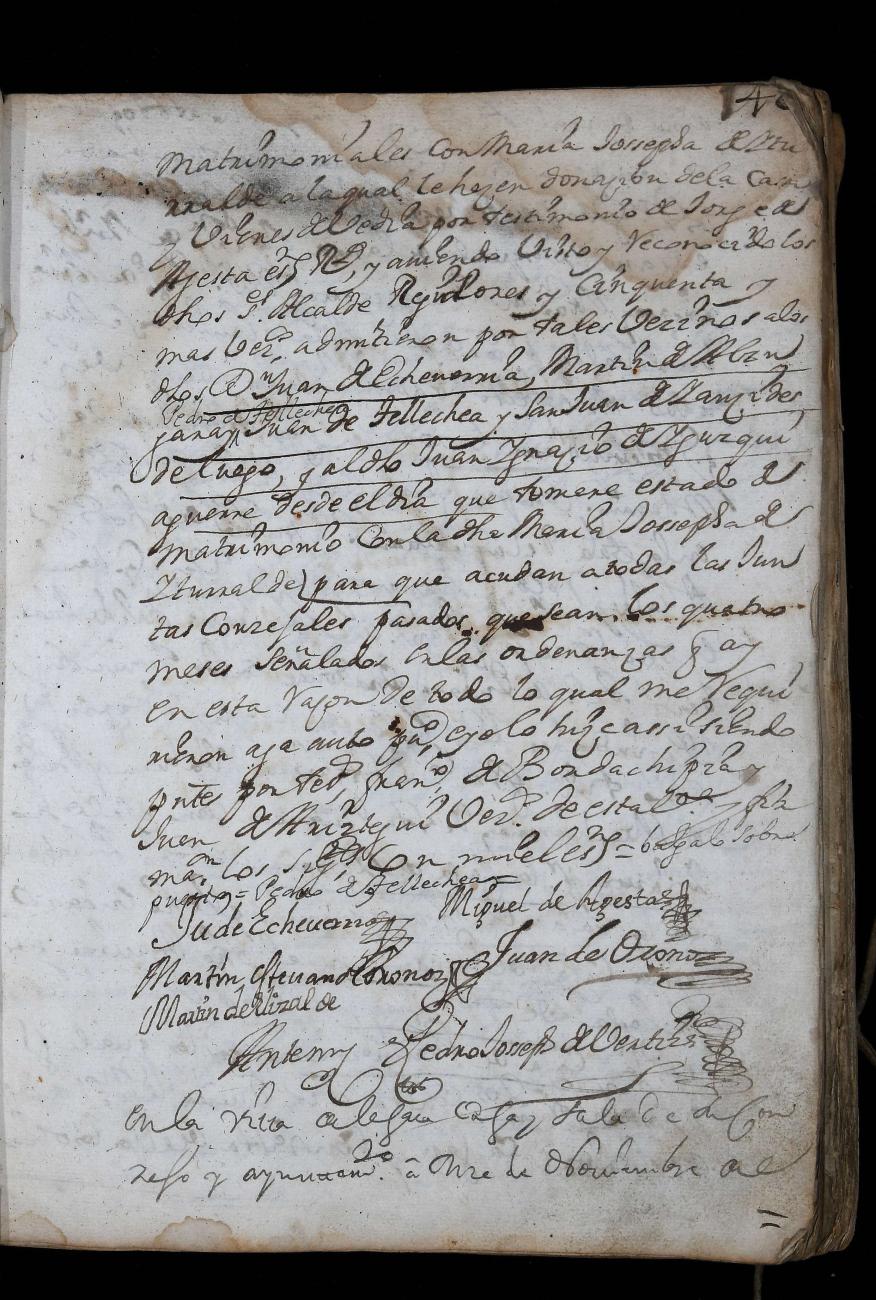 Matrimoniales con Maria Iossepha de Ytu
rralde a la qual le hazen donazion de la Cassa
y Vienes de Vedia por testimonio de Jorge de
Apesta ess.no R.l, y auiendo Visto y Reconocido los
dhos S.s Alcalde Regidores y Cinquenta y
mas Vez.s admitieron por tales Vezinos a los
dhos D.n Juan de Echeverria, Martin de Alzu
Pedro de Tellechea
Juan de Tellechea y San Juan de
de luego, y al dho Juan Ygnazio de Yguzqui
aguerre desde el dia que tomare estado de
Matrimonio Con la dha Maria Iossepha de
Yturralde para que acudan a todas las Jun
tas Conzejales pasados que sean los quatro
meses señalados en las ordenanzas q ay
en esta Razon de todo lo qual me Requi
rieron aze auto pu.co, e yo lo hize assi siendo
pntes por tes.s fran.co de Bondachipia y
Juan de Ariztegui Vez.s de esta
los Con mi el ess.no = balga lo sobre
puesto = Pedro de Tellechea =
Miguel de Apesta
Ju de Echeverria
Juan de Oronoz
Martin estevan de Oronoz
Martin de Elizalde
Ante my Pedro Iosseph de
En la Villa de Lesaca Casa y Sala de su Con
zejo y ayuntam.to â onze de Nobiembre de
=